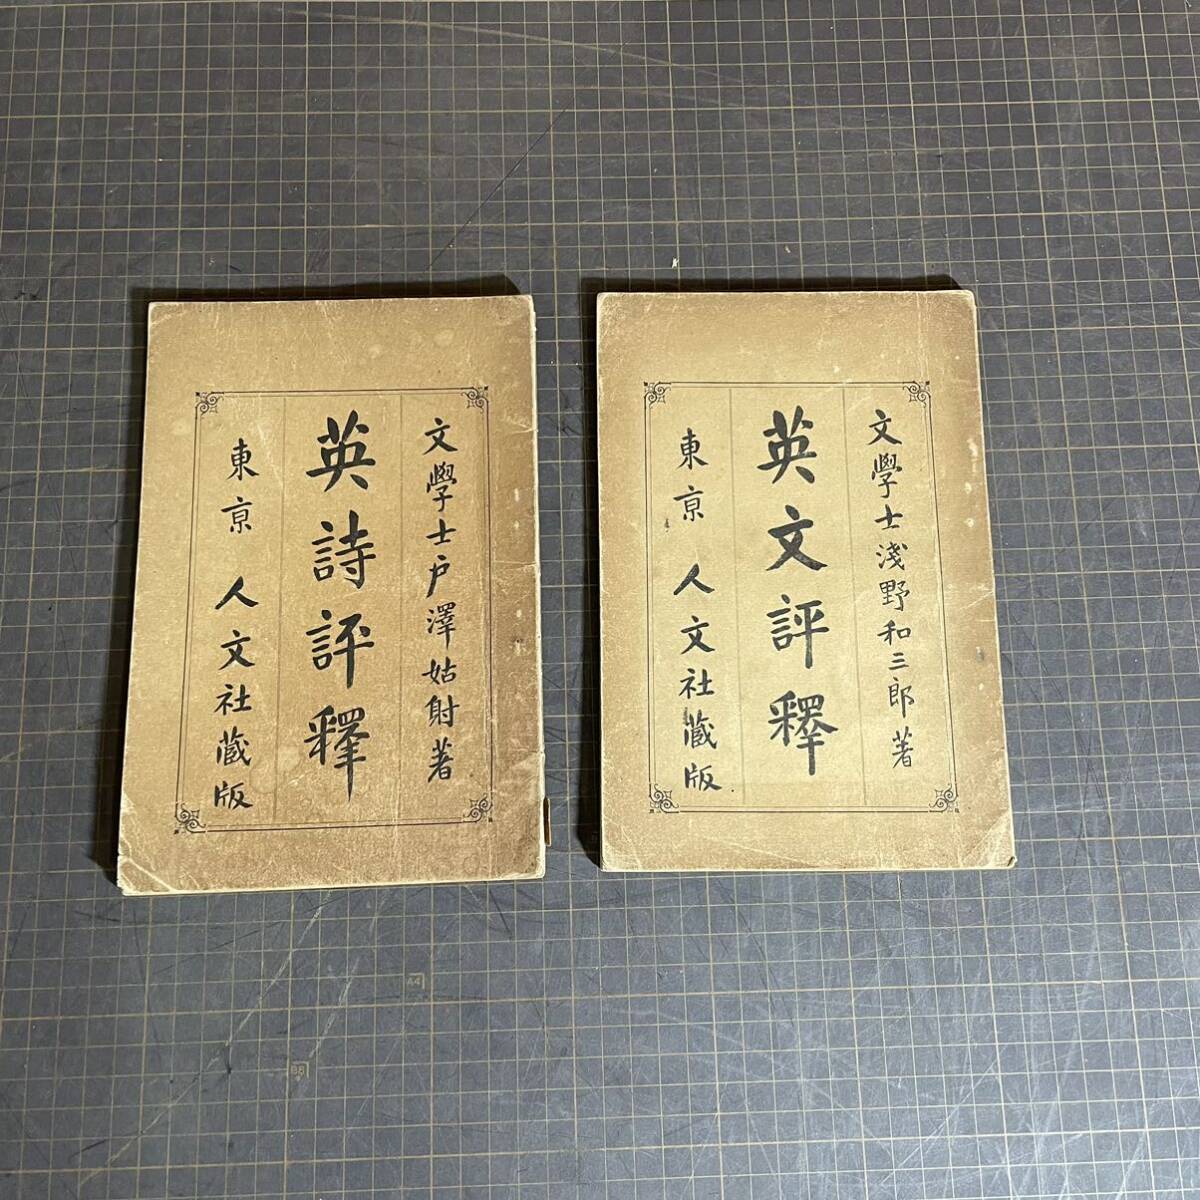 文學士戸澤姑射著
英詩評釋
東京 人文社蔵版
文學士淺野和三郎著
英文評釋
東京 人文社蔵版
A4
B5